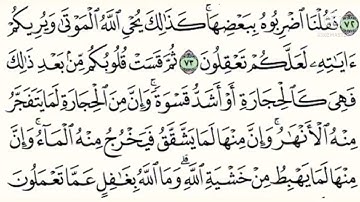 ٧٢ فَقُلْنَا اضْرِبُوهُ بِبَعْضِهَا ۚ كَذَٰلِكَ يُحْيِ اللَّهُ الْمَوْتَىٰ وَيُرِيكُمْ
ءَايَٰتِهِۦ لَعَلَّكُمْ تَعْقِلُونَ ٧٣ ثُمَّ قَسَتْ قُلُوبُكُم مِّنۢ بَعْدِ ذَٰلِكَ
فَهِىَ كَالْحِجَارَةِ أَوْ أَشَدُّ قَسْوَةً ۚ وَإِنَّ مِنَ الْحِجَارَةِ لَمَا يَتَفَجَّرُ
مِنْهُ الْأَنْهَٰرُ ۚ وَإِنَّ مِنْهَا لَمَا يَشَّقَّقُ فَيَخْرُجُ مِنْهُ الْمَآءُ ۚ وَإِنَّ
مِنْهَا لَمَا يَهْبِطُ مِنْ خَشْيَةِ اللَّهِ ۗ وَمَا اللَّهُ بِغَٰفِلٍ عَمَّا تَعْمَلُونَ